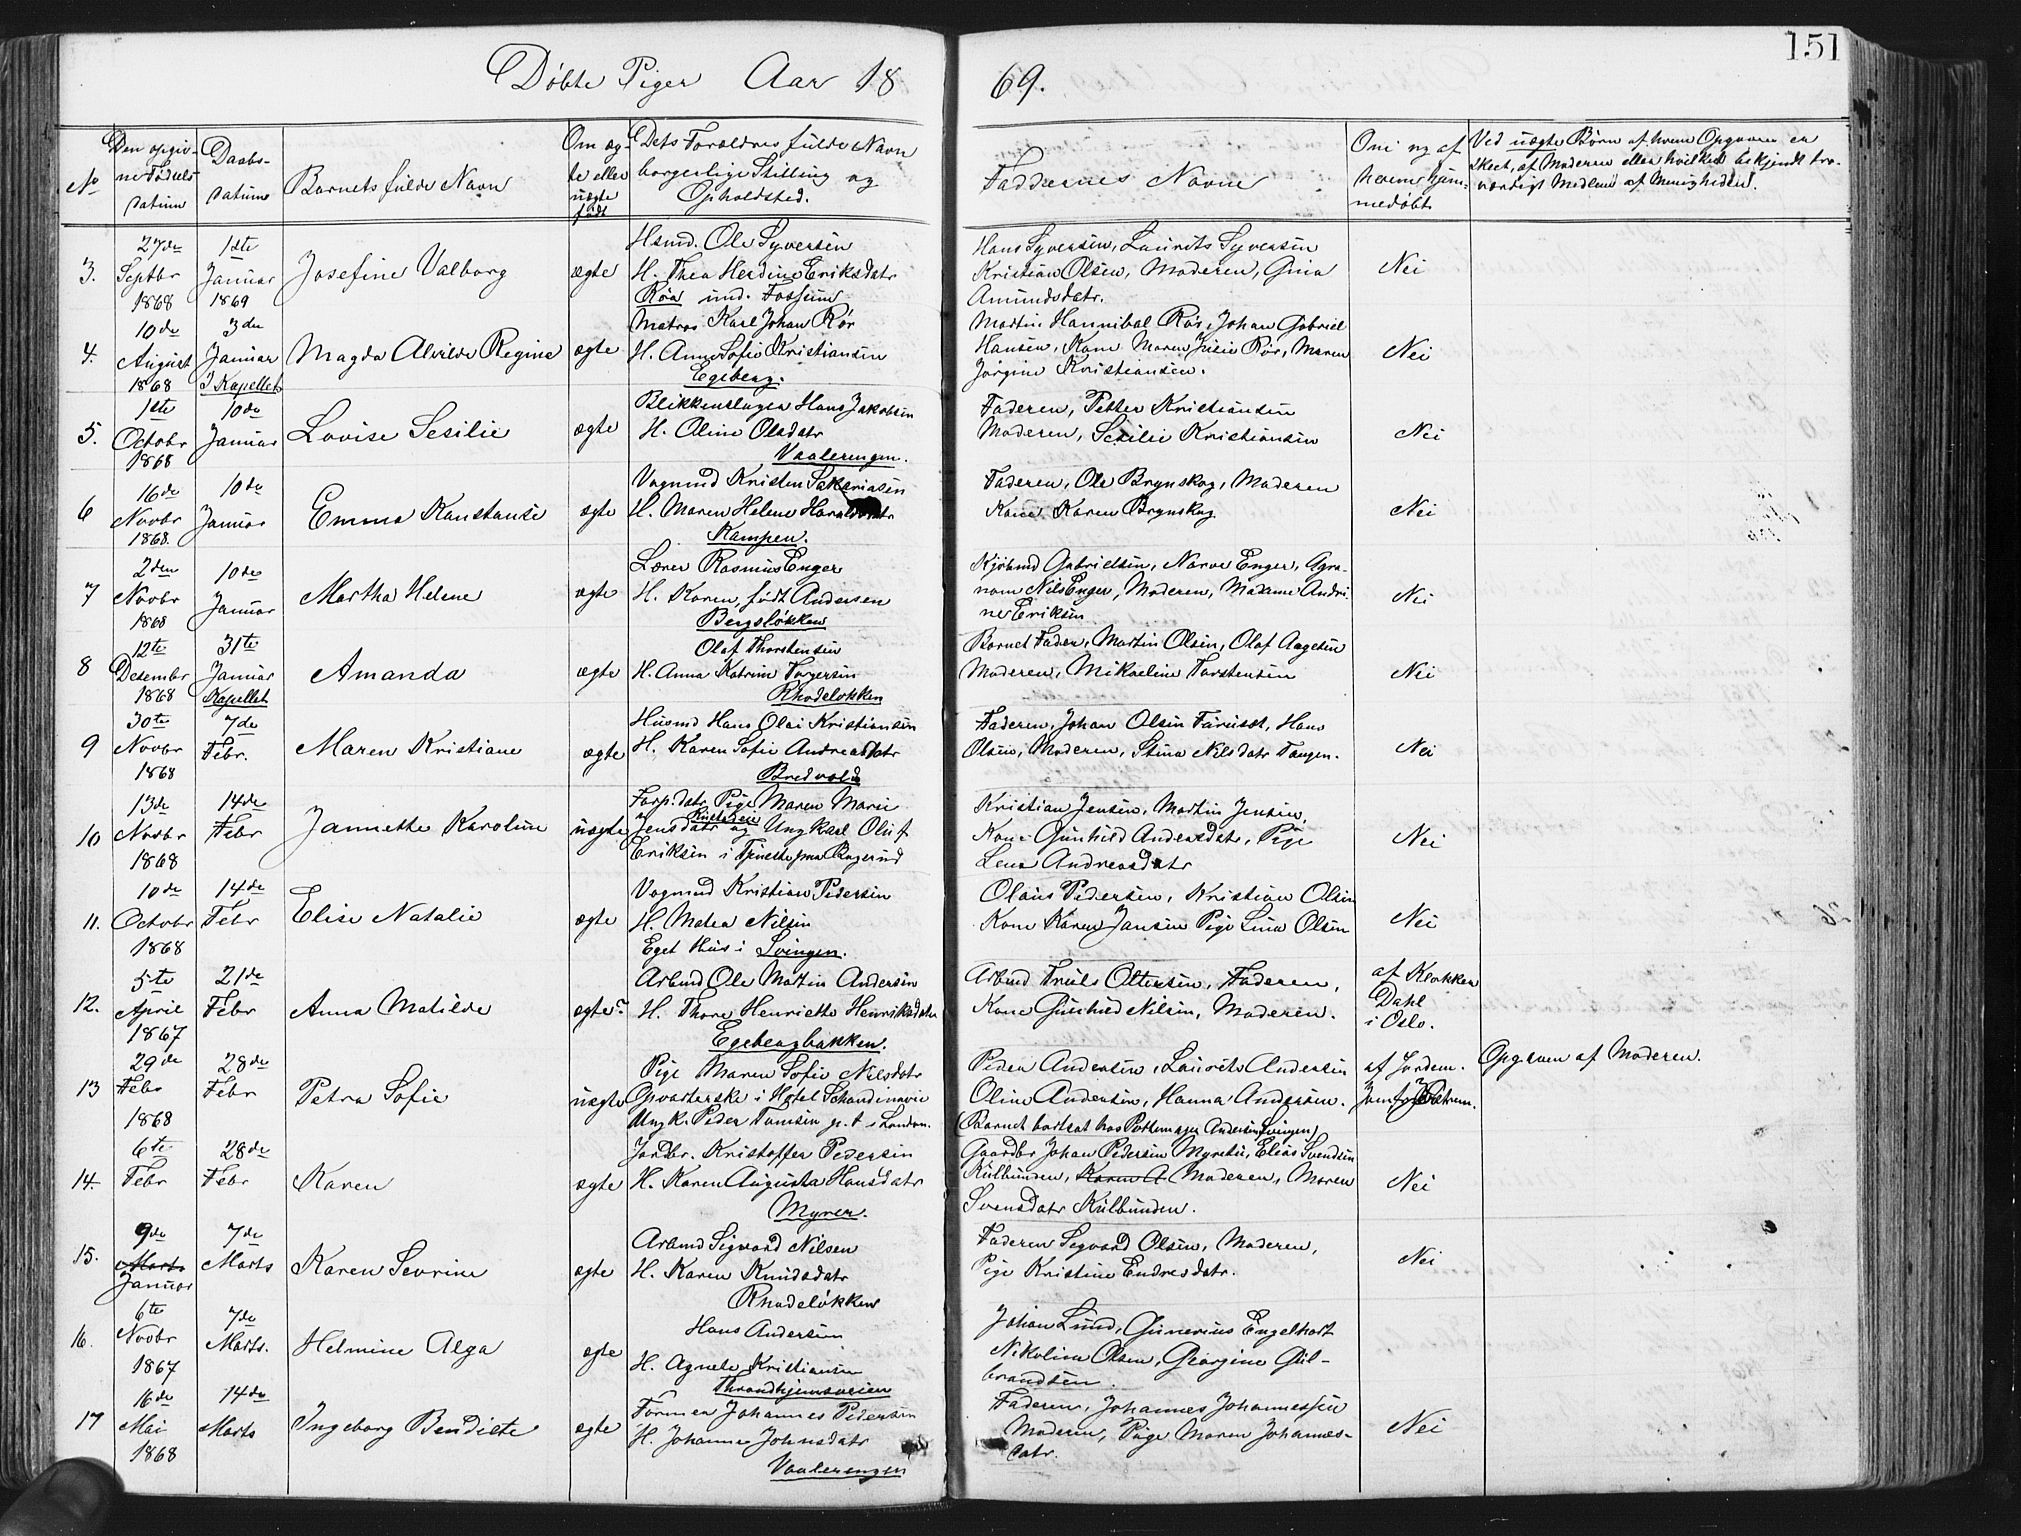 151
Døbte Piger Aar 18 69.
No
Den opgiv-
ne Fødsels
datum
Daabs-
datum
Barnets fulde Navn
Om æg-
te eller
uægte
født
Dets Forældres fulde Navn
borgerlige Stilling og
Opholdsted.
Faddernes Navne
Om og af
hvem hjem-
medøbt
Ved uægte Børn af hvem Opgaven er
skeet, af Moderen eller hvilket bekjendt tro-
værdigt Medlem af Menigheden.
3.
27de
Septbr
1868
1ste
Januar
1869
Josefine Valborg
ægte
Hsmd. Ole Syversen
H. Thea Herdine Eriksdatr
Røa und. Fossum
Hans Syversen, Laurits Syversen
Kristian Olsen, Moderen, Gina
Amundsdatr.
Nei
4.
10de
August
1868
3die
Januar
I Kapellet
Magda Alvilde Regine
ægte
Matros Karl Johan Rør
H. Anne Sofie Kristiansen
Egeberg.
Martin Hannibal Rør, Johan Gabriel
Hansen, Kone Maren Julie Rør, Maren
Jørgine Kristiansen.
Nei
5.
1ste
Octobr
1868
10de
Januar
Lovise Sesilie
ægte
Blikkenslager Hans Jakobsen
H. Oline Olsdatr
Vaalerengen.
Faderen, Petter Kristiansen
Moderen, Sesilie Kristiansen
Nei
6
16de
Novbr
1868.
10de
Januar
Emma Konstanse
ægte
Vognmd Kristen Sakariasen
H. Maren Helene Haraldsdatr
Kampen.
Faderen, Ole Brynskog, Moderen
Kone Karen Brynskog
Nei
7
2den
Novbr
1868
10de
Januar
Martha Helene
ægte
Lærer Rasmus Enger
H. Karen, født Andersen
Bergsløkken
Kjøbmd Gabrielsen, Narve Enger, Agro-
nom Nils Enger, Moderen, Madame Andri-
ne Eriksen
Nei
8
12te
Desembr
1868
31te
Januar
Kapellet
Amanda
ægte
Olaf Thorstensen
H. Anna Katrine Torgersen
Rhodeløkken
Barnet Fader, Martin Olsen, Olaf Aagesen
Moderen, Mikaeline Torstensen
Nei
9
30te
Novbr
1868
7de
Febr.
Maren Kristiane
ægte
Husmd Hans Olai Kristiansen
H. Karen Sofie Andreasdatr
Bredvold
Faderen, Johan Olsen Furuset, Hans
Olsen, Moderen, Stina Nilsdatr Tangen.
Nei
10
13de
Novbr
1868
14de
Febr
Jannette Karoline
uægte
Forp. datr Pige Maren Marie
Jensdatr og Ungkarl Oluf
Eriksen i Tjeneste paa Bogerud
Kristian Jensen, Martin Jensen,
Kone Gunhild Andersdatr, Pige
Lena Andreasdatr
Nei
11.
10de
Octobr
1868
14de
Febr
Elise Natalie
ægte
Vognmd Kristian Pedersen
H. Matea Nilsen
Eget Huus i Svingen.
Olaus Pedersen, Kristian Olsen
Kone Karen Jansen Pige Lina Olsen
Nei
12.
5te
April
1867
21de
Febr
Anna Matilde
ægte
Arbmd Ole Martin Andersen
H. Thora Henriette Henriksdatr
Egebergbakken.
Arbmd Truls Ottersen, Faderen,
Kone Gunhild Nilsen, Moderen.
af Klokker
Dahl
i Oslo.
13
29de
Febr
1868
28de
Febr
Petra Sofie
uægte
Pige Maren Sofie Nilsdatr
Opvarterske i Hotel Skandinavie
Ungk. Peder Tomsen p. t. i London.
Peder Andersen, Laurits Andersen
Oline Andersen, Hanna Andersen.
(Barnet bortsat hos Pottemager Andersen Svingen)
af Jordem.
Opgaven af Moderen.
14.
6te
Febr
28de
Febr
Karen
ægte
Jordbr. Kristoffer Pedersen
H. Karen Augusta Hansdatr
Myrer.
Gaardbr Johan Pedersen Myrstu, Elias Svendsen
Kulbunden, Karen A Moderen, Maren
Svensdatr Kulbunden.
Nei
15.
9de
Marts
Januar
7de
Marts
Karen Sevrine
ægte
Arbmd Sigvard Nilsen
H. Karen Knudsdatr
Rhodeløkken
Faderen Segvard Olsen, Moderen,
Pige Kristine Endresdatr.
Nei
16.
6te
Novbr
1867
7de
Marts.
Helmine Alga
ægte
Hans Andersen
H. Agnete Kristiansen
Throndhjemsveien
Johan Lund, Gunerius Engelhart
Nikolina Olsen, Georgine Gul-
brandsen.
17
16de
Mai
1868
14de
Marts
Ingeborg Bendicte
ægte
Former Johannes Pedersen
H. Johanne Johnsdatr
Vaalerengen
Faderen, Johannes Johannessen
Moderen, Pige Maren Johannes-
datr.
Nei